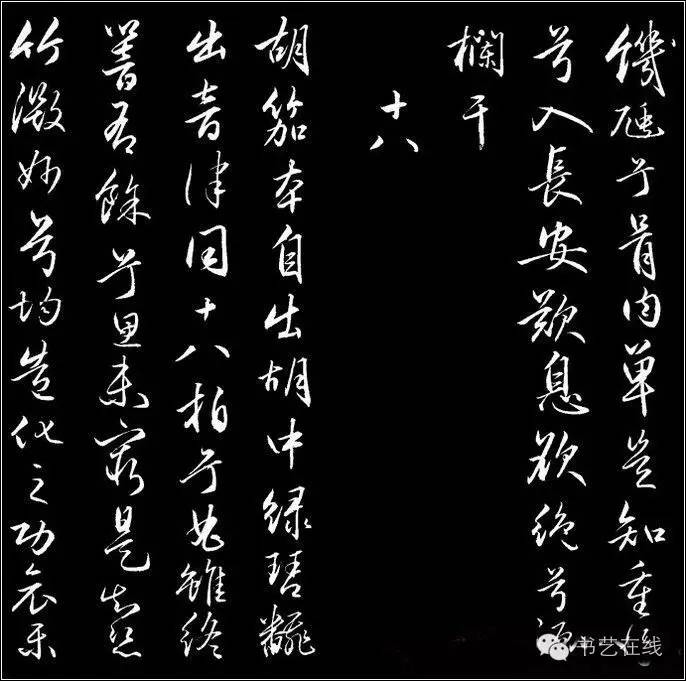 饑虺兮骨肉單豈知重得
兮入長安歎息欲絕兮淚
欄干
十八
胡笳本自出胡中綠琴翻
出音律同十八拍兮曲雖終
響有餘兮思未窮是知絲
竹微妙兮均造化之功哀樂
书艺在线